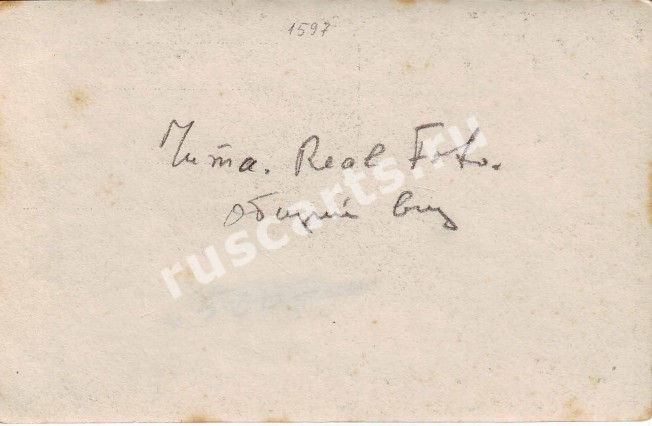 1597
Чита. Real Foto.
общий вид
ruscarts.ru